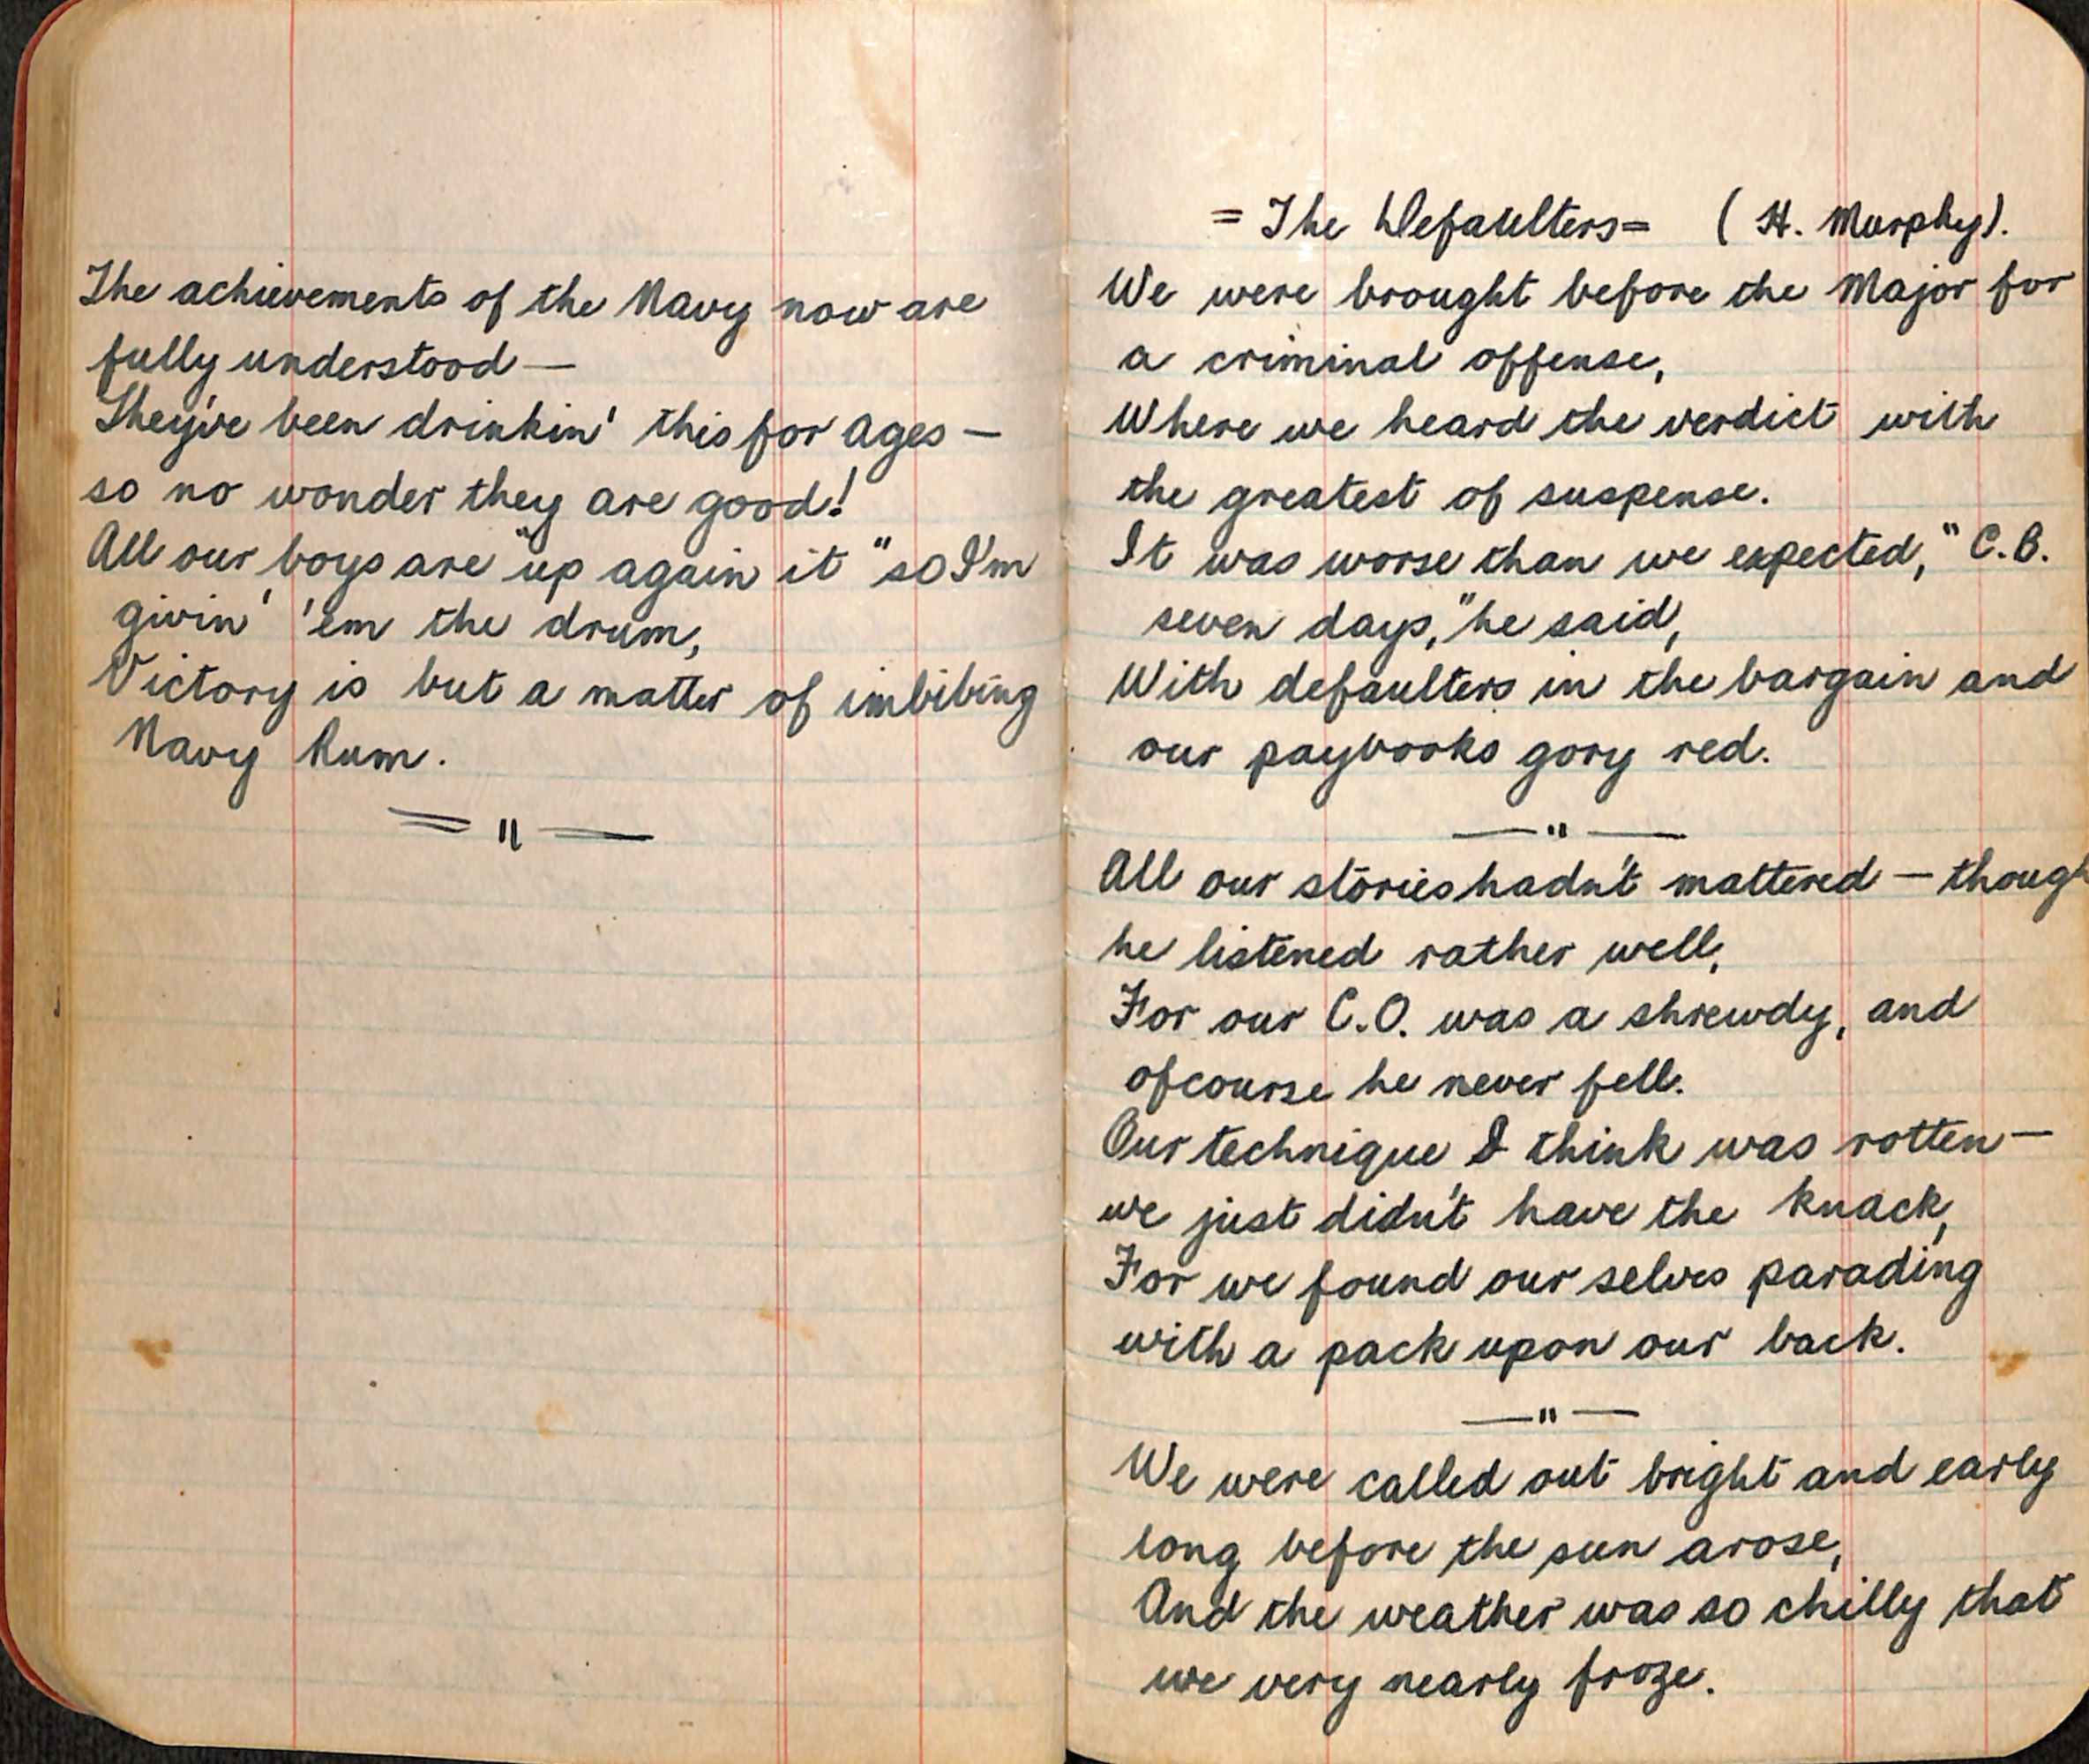 The achievements of the Navy now are
fully understood —
They've been drinkin' this for ages —
so no wonder they are good!
All our boys are "up again it" so I'm
givin' 'em the drum,
Victory is but a matter of imbibing
Navy Rum.
= " =
= The Defaulters = (H. Murphy).
We were brought before the Major for
a criminal offense,
Where we heard the verdict with
the greatest of suspense.
It was worse than we expected, "C.B.
seven days," he said,
With defaulters in the bargain and
our paybooks gory red.
— " —
All our stories hadn't mattered — though
he listened rather well,
For our C.O. was a shrewdy, and
ofcourse he never fell.
Our technique I think was rotten —
we just didn't have the knack,
For we found our selves parading
with a pack upon our back.
— " —
We were called out bright and early
long before the sun arose,
And the weather was so chilly that
we very nearly froze.